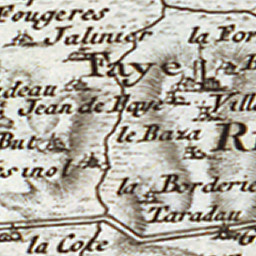 Fougeres
Jalinier
la For
Faye
udeau
Jean de Baye
Ville
But
le Baza
Ri
sinol
la Borderie
Taradau
la Coste